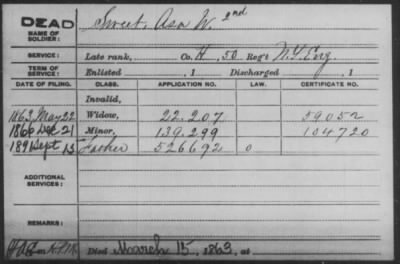 DEAD
NAME OF SOLDIER: Sweet, Asa W. 2nd
SERVICE: Late rank, Co. H, 50 Reg't N.Y. Eng.
TERM OF SERVICE: Enlisted , 1 Discharged , 1
DATE OF FILING. CLASS. APPLICATION NO. LAW. CERTIFICATE NO.
Invalid,
1863 May 22 Widow, 22.207 59052
1866 Dec 21 Minor, 139.299 104720
1891 Sept 15 Father 526692 0
ADDITIONAL SERVICES:
REMARKS:
Died March 15, 1863, at